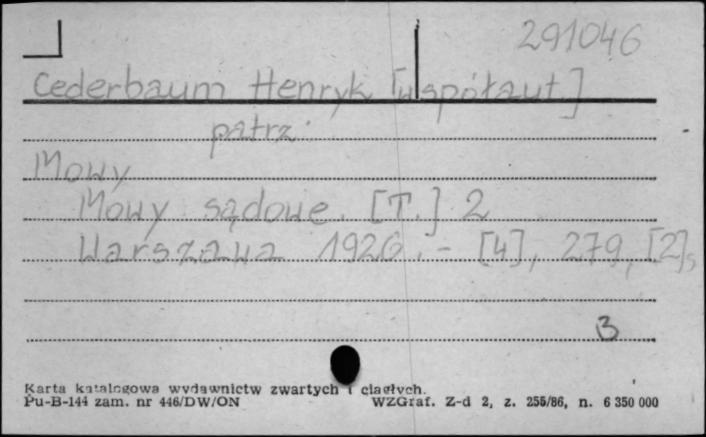 291046
Cederbaum Henryk [współaut.]
patrz:
Mowy
Mowy sądowe. [T.] 2
Warszawa 1926. - [4], 279, [2] s
B
Karta katalogowa wydawnictw zwartych i ciągłych.
Pu-B-144 zam. nr 446/DW/ON WZGraf. Z-d 2, z. 255/86, n. 6 350 000